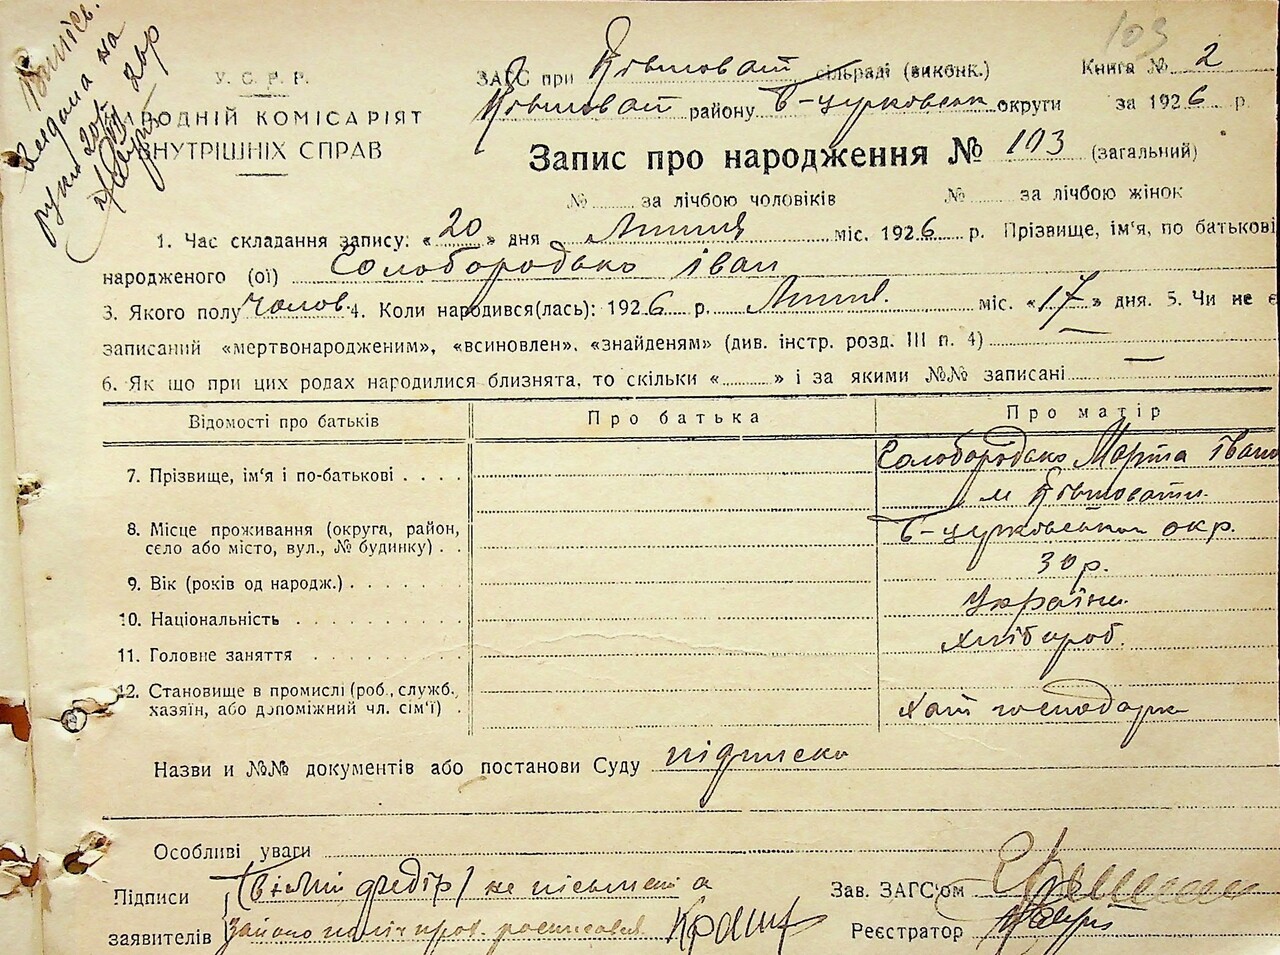 103
Випись
видана на
руки 20/VII 26р
У. С. Р. Р.
НАРОДНІЙ КОМІСАРІЯТ
ВНУТРІШНІХ СПРАВ
ЗАГС при Ківшоват сільраді (виконк.) Книга № 2
Ківшоват району Б-Церковськ округи за 1926 р.
Запис про народження № 103 (загальний)
№ за лічбою чоловіків № за лічбою жінок
1. Час складання запису: «20» дня Липня міс. 1926 р. Прізвище, ім'я, по батькові
народженого (ої) Солобородько Іван
3. Якого полу чолов. 4. Коли народився(лась): 1926 р. Липня. міс. «17» дня. 5. Чи не є
записаний «мертвонародженим», «всиновлен», «знайденям» (див. інстр. розд. III п. 4) —
6. Як що при цих родах народилися близнята, то скільки « » і за якими №№ записані —
Відомості про батьків Про батька Про матір
7. Прізвище, ім'я і по-батькові . . . . Солобородько Марта Івано
м Ківшовати.
8. Місце проживання (округа, район, Б-Церковської окр.
село або місто, вул., № будинку) . .
9. Вік (років од народж.) . . . . . . 30 р.
10. Національність . . . . . . . . . Україн.
11. Головне заняття . . . . . . . . хлібороб.
12. Становище в промислі (роб., служб.,
хазяїн, або допоміжний чл. сім'ї) . господарка
Назви и №№ документів або постанови Суду підписка
Особливі уваги
Підписи федір) не письмений а Зав. ЗАГС'ом
заявителів за його Реєстратор